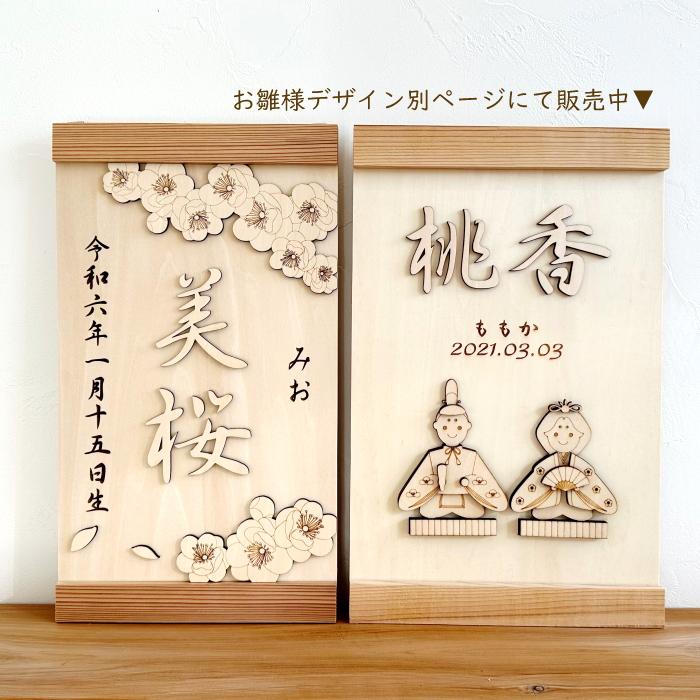 お雛様デザイン別ページにて販売中▼
令和六年一月十五日生
美桜
みお
桃香
ももか
2021.03.03